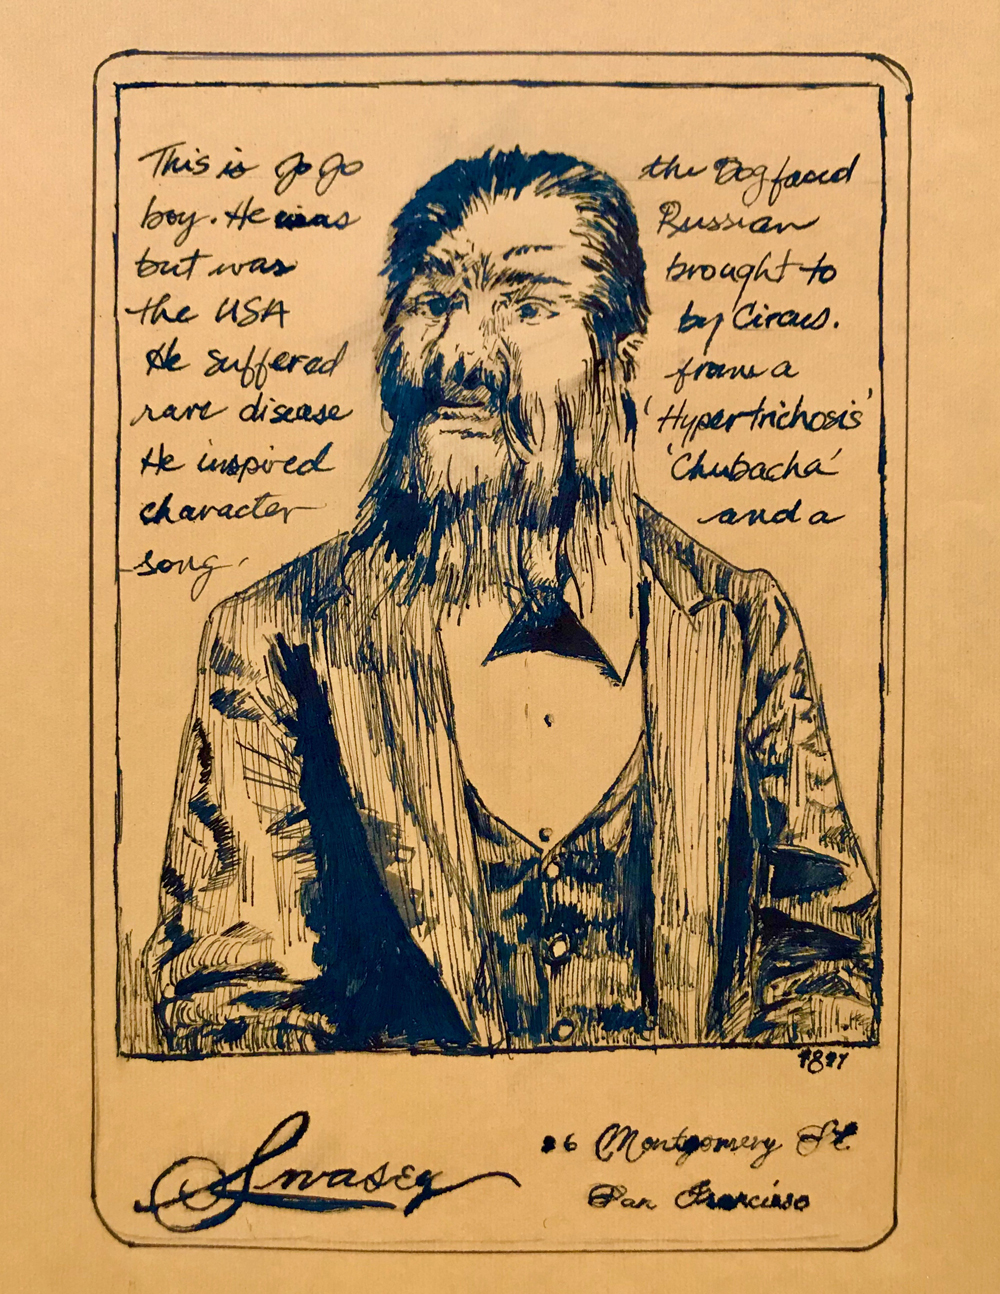 This is Jo Jo the Dog faced
boy. He was Russian
but was brought to
the USA by Circus.
He suffered from a
rare disease 'Hypertrichosis'
He inspired 'Chubacha'
character and a
song.
Swasey
26 Montgomery St
San Francisco